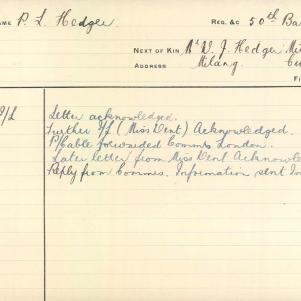 AME P. L. Hedger REG. &C 50th Ba
NEXT OF KIN Mr W. J. Hedger
ADDRESS Milang.
FI
/L Letter acknowledged.
Further I/L (Miss Dent) Acknowledged.
P/Cable forwarded Commrs London.
Later letter from Miss Dent Acknowle
Reply from Commrs. Information sent In